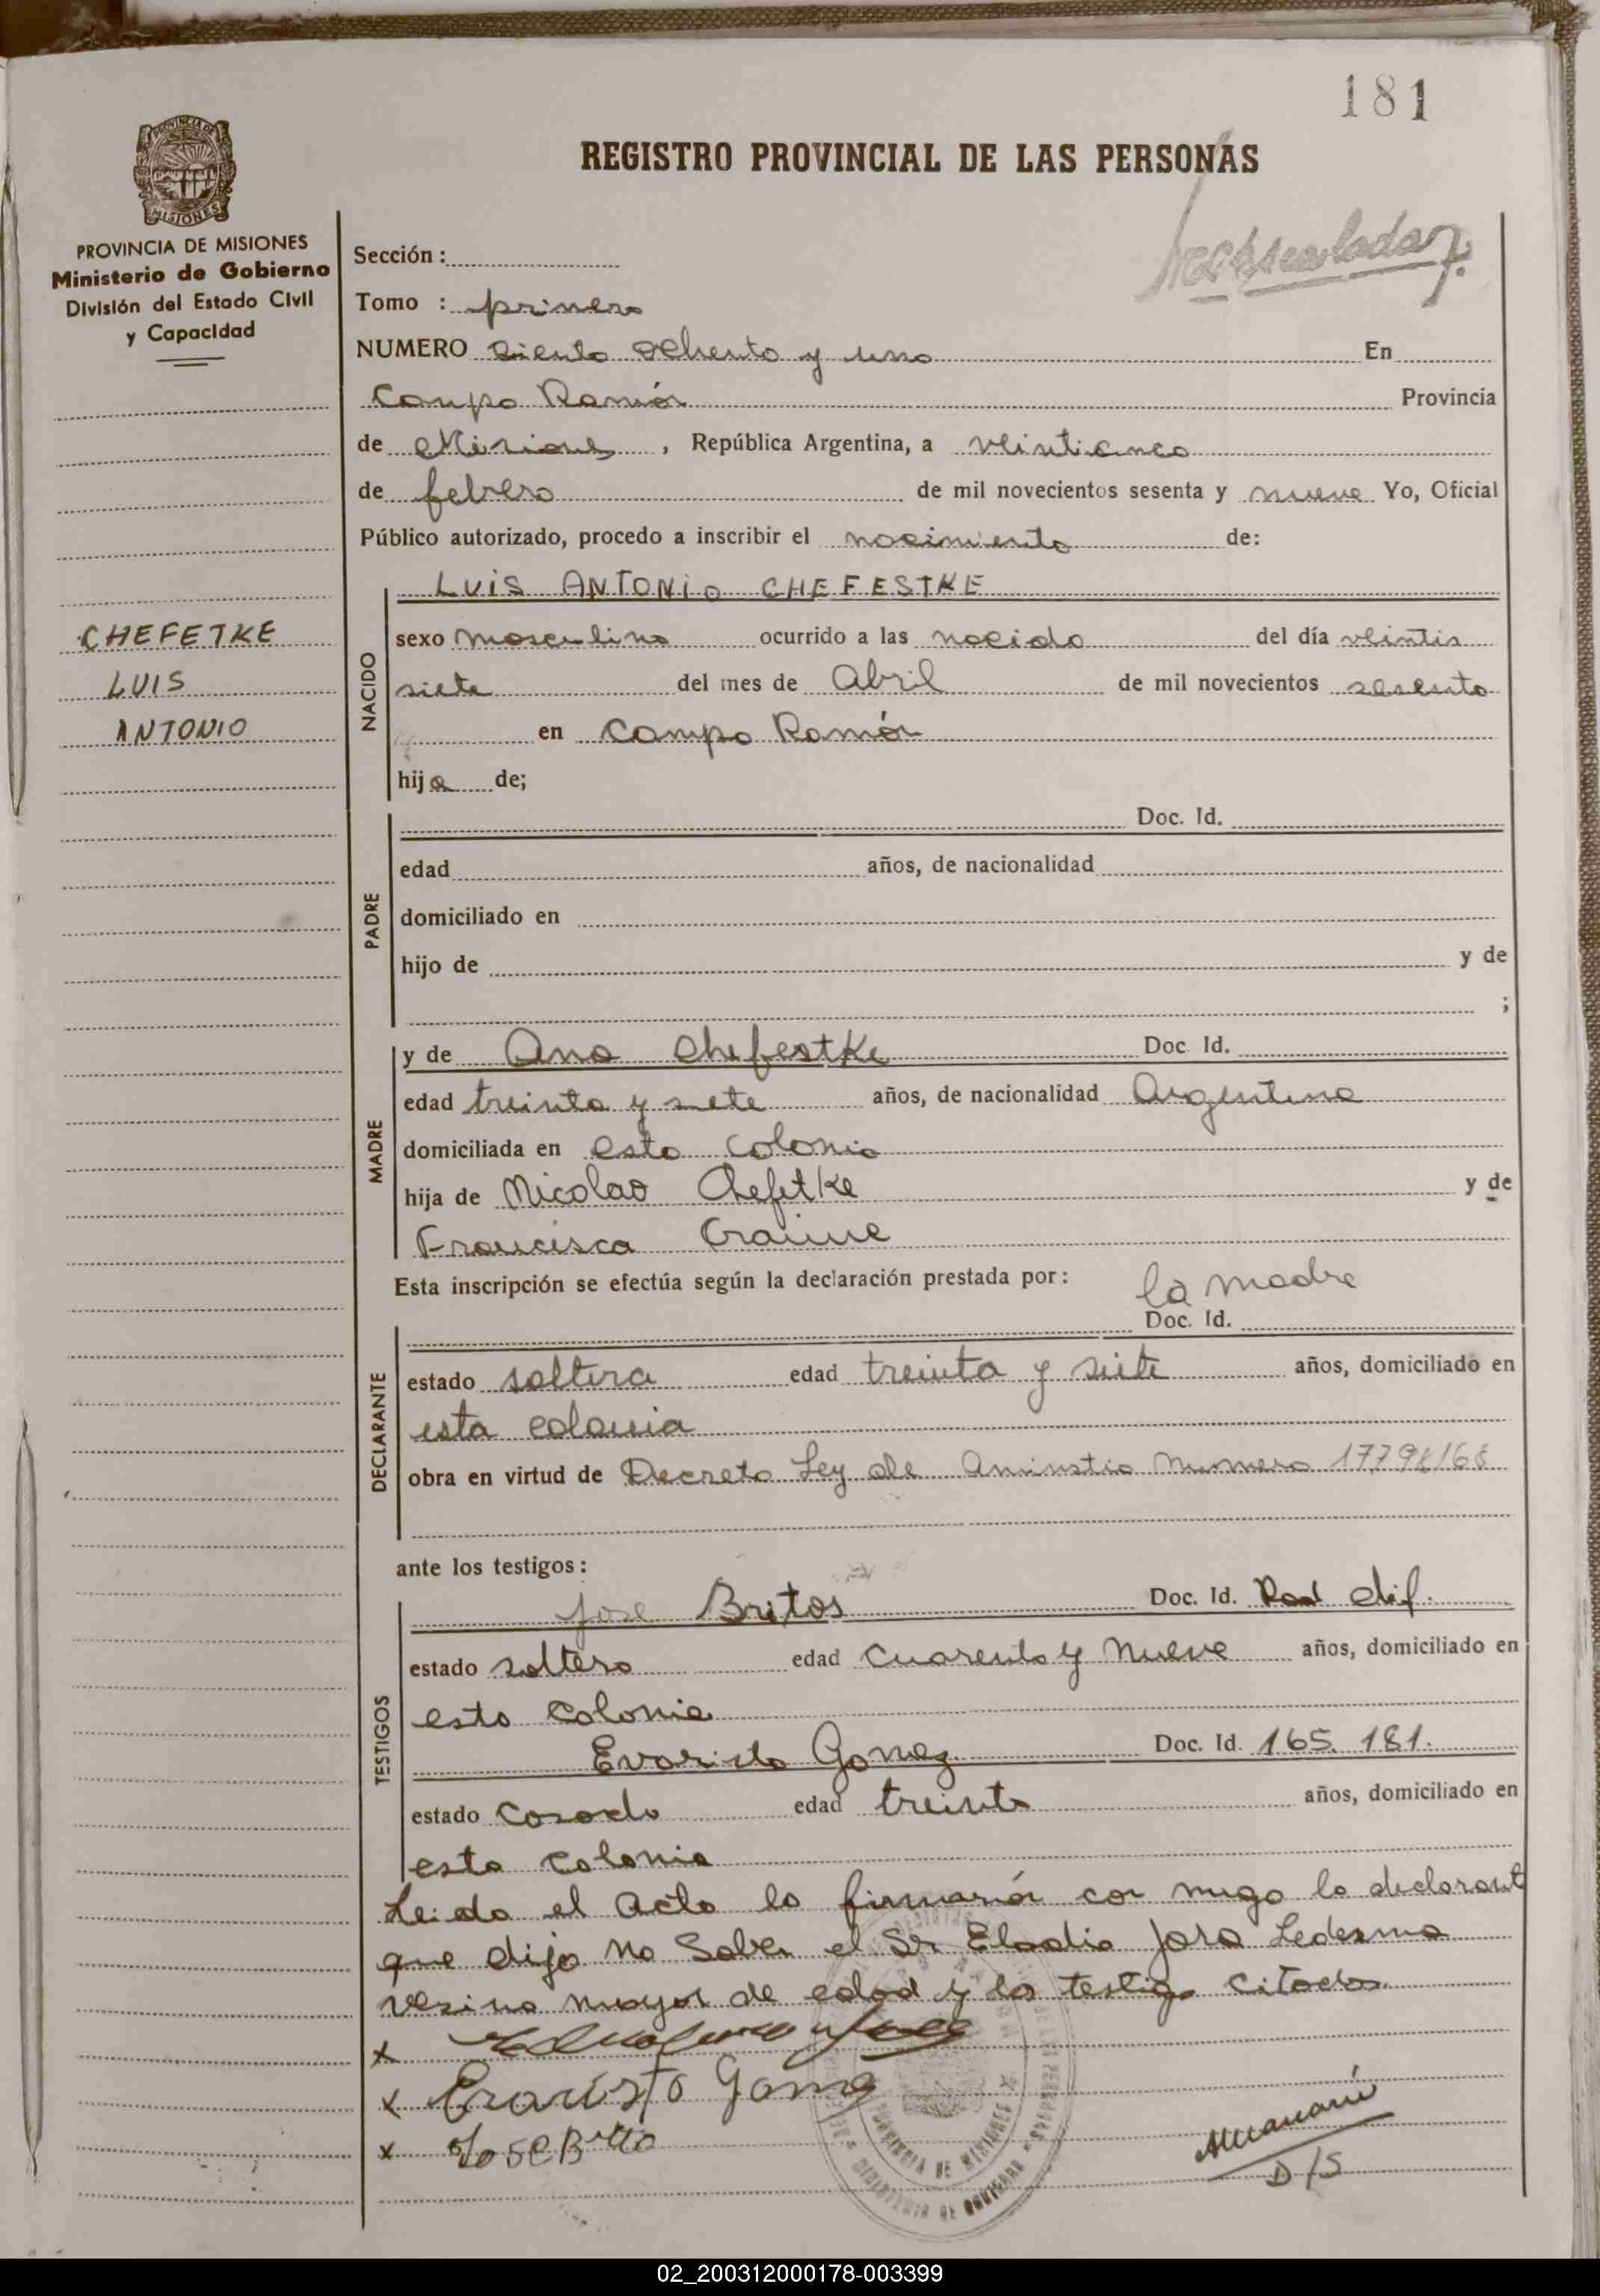 181
REGISTRO PROVINCIAL DE LAS PERSONAS
PROVINCIA DE MISIONES
Ministerio de Gobierno
División del Estado Civil
y Capacidad
Sección :
Tomo : primero
NUMERO Ciento Ochento y uno En
Campo Ramón Provincia
de Misiones , República Argentina, a veinticinco
de febrero de mil novecientos sesenta y nueve Yo, Oficial
Público autorizado, procedo a inscribir el nacimiento de:
LUIS ANTONIO CHEFESTKE
CHEFETKE
LUIS
ANTONIO
NACIDO
sexo masculino ocurrido a las nacido del día veintis
siete del mes de Abril de mil novecientos sesenta
en Campo Ramón
hijo de;
PADRE
Doc. Id.
edad años, de nacionalidad
domiciliado en
hijo de y de
;
MADRE
y de Ana Chefestke Doc. Id.
edad treinta y siete años, de nacionalidad Argentina
domiciliada en esta Colonia
hija de Nicolao Chefetke y de
Francisca
Esta inscripción se efectúa según la declaración prestada por: la madre
DECLARANTE
Doc. Id.
estado soltera edad treinta y siete años, domiciliado en
esta colonia
obra en virtud de Decreto Ley de Aministia Numero
ante los testigos:
TESTIGOS
Jose Britos Doc. Id.
estado soltero edad Cuarenta y Nueve años, domiciliado en
esta Colonia
Evaristo Gomez Doc. Id. 165.181.
estado Casado edad treinta años, domiciliado en
esta Colonia
Leido el Acta la firmarón con migo la declarant
que dijo no Saber el Sr Eladio Jara Ledesma
vesino mayor de edad y los testigo Citados
x
x Evaristo Gomez
x Jose Brito
D/S
02_200312000178-003399